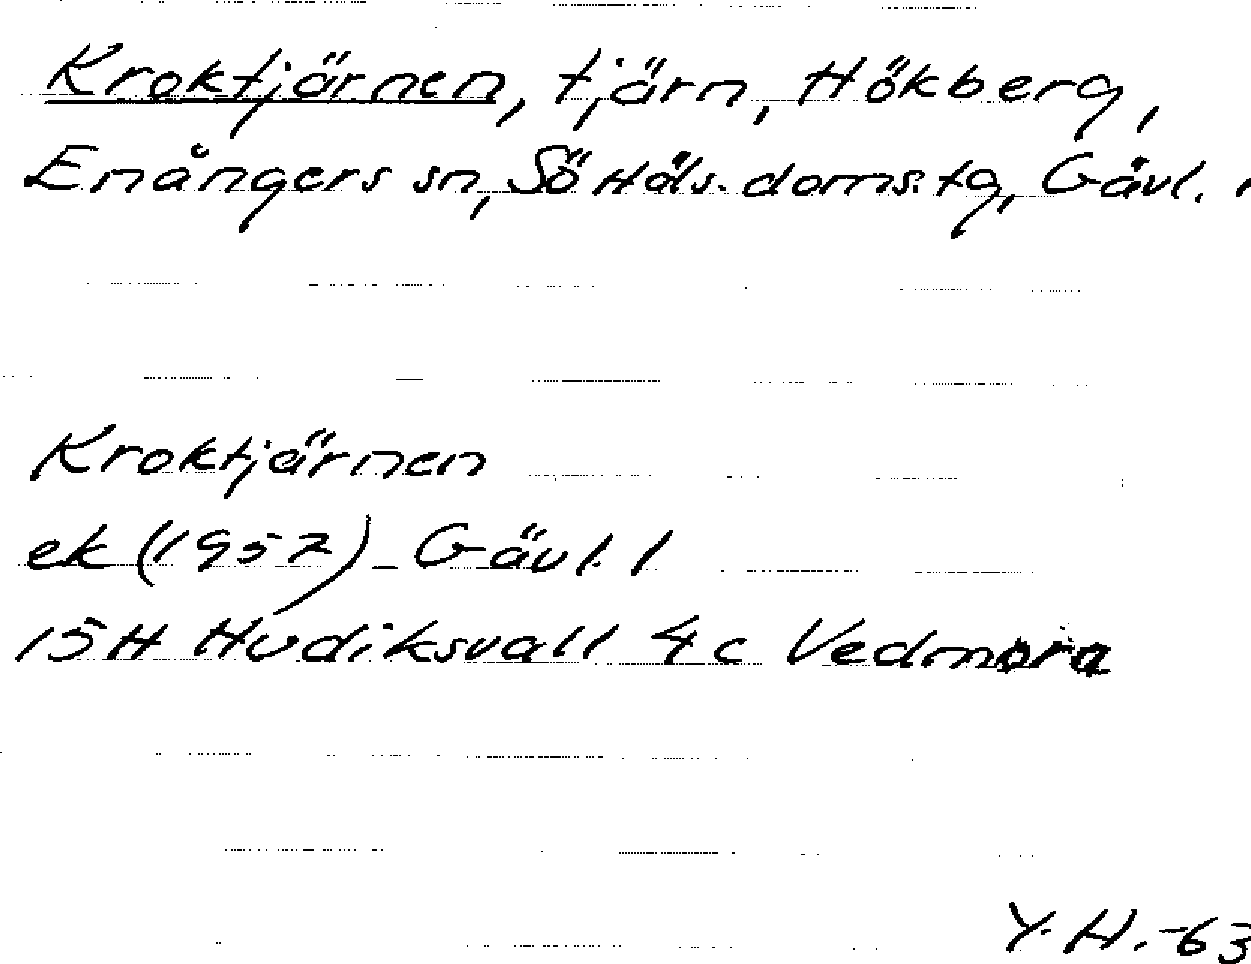 Kroktjärnen, tjärn, Hökberg,
Enångers sn, Sö Häls. doms. tg, Gävl. l
Kroktjärnen
ek (1957) Gävl. l
15H Hudiksvall 4c Vedmora
Y. H. -63